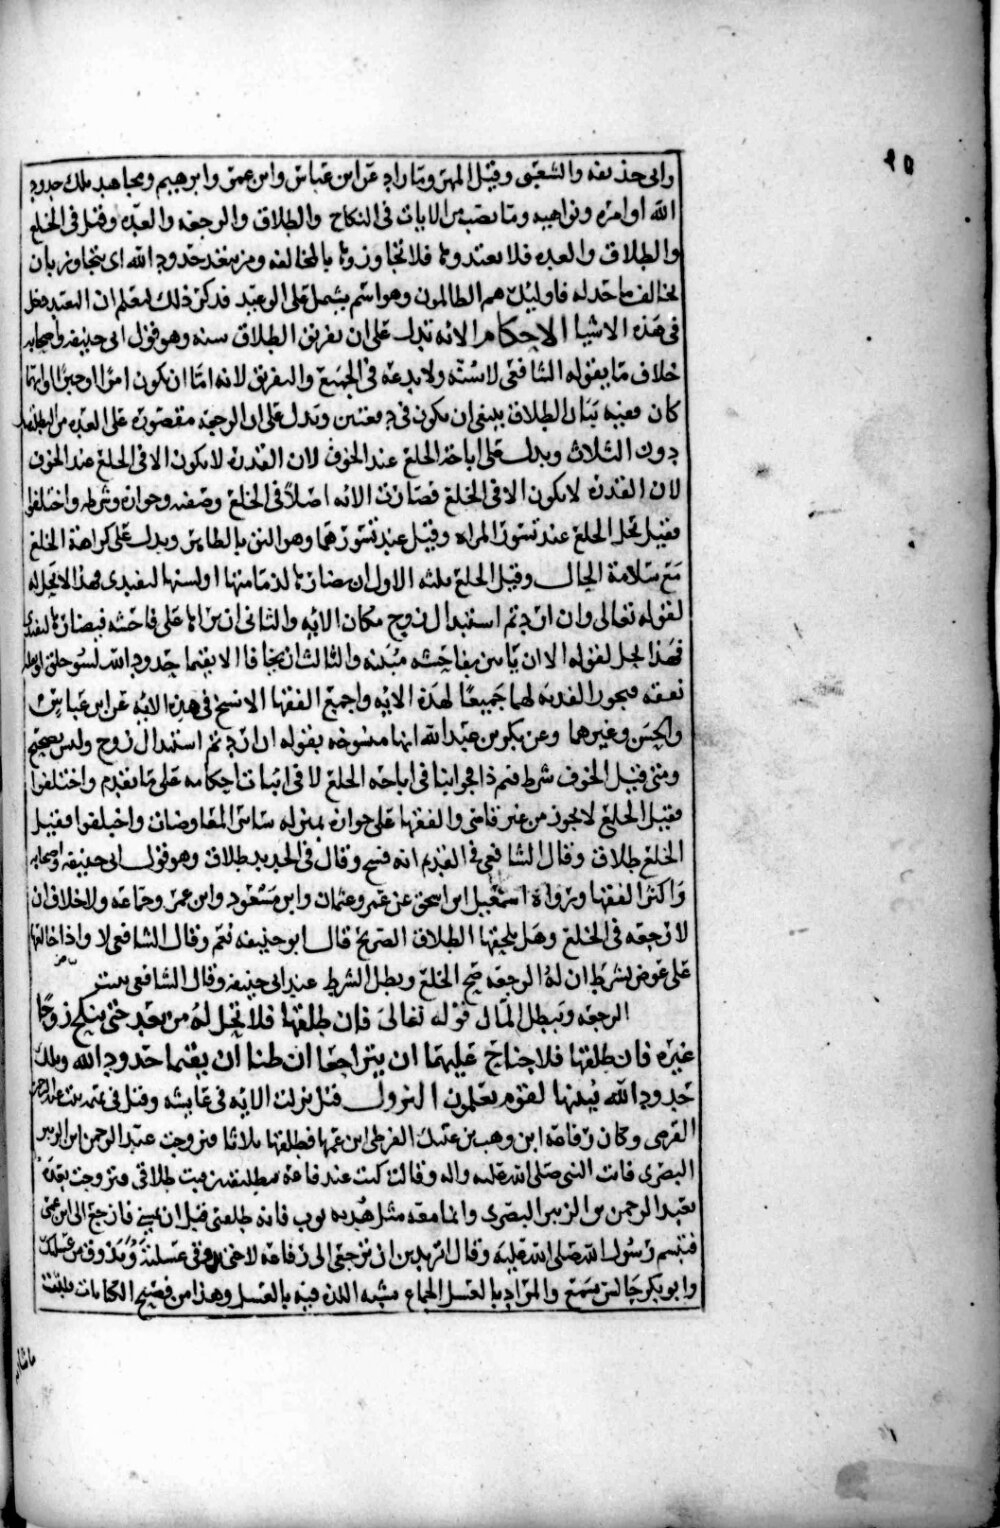 ٩٥
وابى حذيفه والشعبى وقيل المهر وما زاد عن ابن عباس وابن عمر وابرهيم ومجاهد تلك حدود
الله اوامره ونواهيه وما نصب من الايات فى النكاح والطلاق والرجعه والعده وقيل فى الخلع
والطلاق والعده فلا تعتدوها فلا تجاوزوها بالمخالفه ومن يتعد حدود الله اى يتجاوز بان
يخالف ما حد له فاوليك هم الظالمون وهو اسم يشمل على الوعيد فذكر ذلك ليعلم ان التعدى
فى هذه الاشيا الاحكام الايه تدل على ان تفريق الطلاق سنه وهو قول ابى حنيفه واصحابه
خلاف ما يقوله الشافعى لا سنه ولا بدعه فى الجمع والتفريق لانه اما ان يكون امرا او خبرا وايهما
كان ففيه بيان الطلاق ينبغى ان يكون فى دفعتين وتدل على ان الرجعه مقصوره على العده من
دون الثلاث ويدل على اباحة الخلع عند الخوف لان الفديه لا يكون الا فى الخلع عند الخوف
لان الفديه لا يكون الا فى الخلع فصارت الايه اصلا فى الخلع وصفته وجوازه وشرطه واختلفوا
فقيل يحل الخلع عند نشوز المراه وقيل عند نشوزهما وهو اليق بالظاهر ويدل على كراهة الخلع
مع سلامة الحال وقيل الخلع ثلثه الاول ان يضارها لذمامتها او لسنها لتفتدى فهذا لا يحل له
لقوله تعالى وان اردتم استبدال زوج مكان الايه والثانى ان يراها على فاحشه فيضارها لتفتدى
فهذا يحل لقوله الا ان ياتين بفاحشه مبينه والثالث ان يخافا الا يقيما حدود الله لسو خلق او قله
نفقه فيجوز الفديه لهما جميعا لهذه الايه واجمع الفقها الا نسخ فى هذه الايه عن ابن عباس
والحسن وغيرهما وعن بكر بن عبد الله انها منسوخه بقوله ان اردتم استبدال زوج وليس بصحيح
ومتى قيل الخوف شرط فيم ذا فجوابنا فى اباحه الخلع لا فى اثبات احكامه على ما تقدم واختلفوا
فقيل الخلع لا يجوز من غير قاضى والفقها على جوازه بمنزله ساير المعاوضات واختلفوا فقيل
الخلع طلاق وقال الشافعى فى القديم انه فسخ وقال فى الجديد طلاق وهو قول ابى حنيفه واصحابه
واكثر الفقها ورواه اسمعيل ابن اسحق عن عمر وعثمان وابن مسعود وابن عمر وجماعه ولا خلاف ان
لا رجعه فى الخلع وهل يلحقها الطلاق الصريح قال ابو حنيفه نعم وقال الشافعى لا واذا خالعها
على عوض بشرط ان له الرجعه صح الخلع وبطل الشرط عند ابى حنيفه وقال الشافعى
الرجعه وتبطل المال قوله تعالى فان طلقها فلا تحل له من بعد حتى ينكح زوجا
غيره فان طلقها فلا جناح عليهما ان يتراجعا ان ظنا ان يقيما حدود الله وتلك
حدود الله يبينها لقوم يعلمون النزول قيل نزلت الايه فى عايشه وقيل فى تميمه بنت عبد الرحمن
القرظى وكان رفاعه ابن وهب بن عتيك القرظى ابن عمها فطلقها ثلاثا فتزوجت عبد الرحمن ابن الزبير
النضرى فاتت النبى صلى الله عليه واله وقالت كنت عند رفاعه فطلقنى فبت طلاقى فتزوجت بعده
بعبد الرحمن بن الزبير النضرى وانما معه مثل هدبه ثوب فانه طلقنى قبل ان يمسنى فارجع الى ابن عمى
فتبسم رسول الله صلى الله عليه وقال اتريدين ان ترجعى الى رفاعه لا حتى تذوقى عسيلته ويذوق من عسيلتك
وابو بكر جالس يسمع والمراد بالعسل الجماع شبه اللذه فيه بالعسل وهذا من فصيح الكنايات